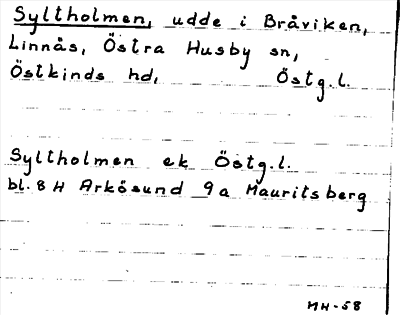 Syltholmen, udde i Bråviken,
Linnås, Östra Husby sn,
Östkinds hd, Östg.l.
Syltholmen ek Östg.l.
bl. 8 H Arkösund 9a Mauritsberg
MH-58